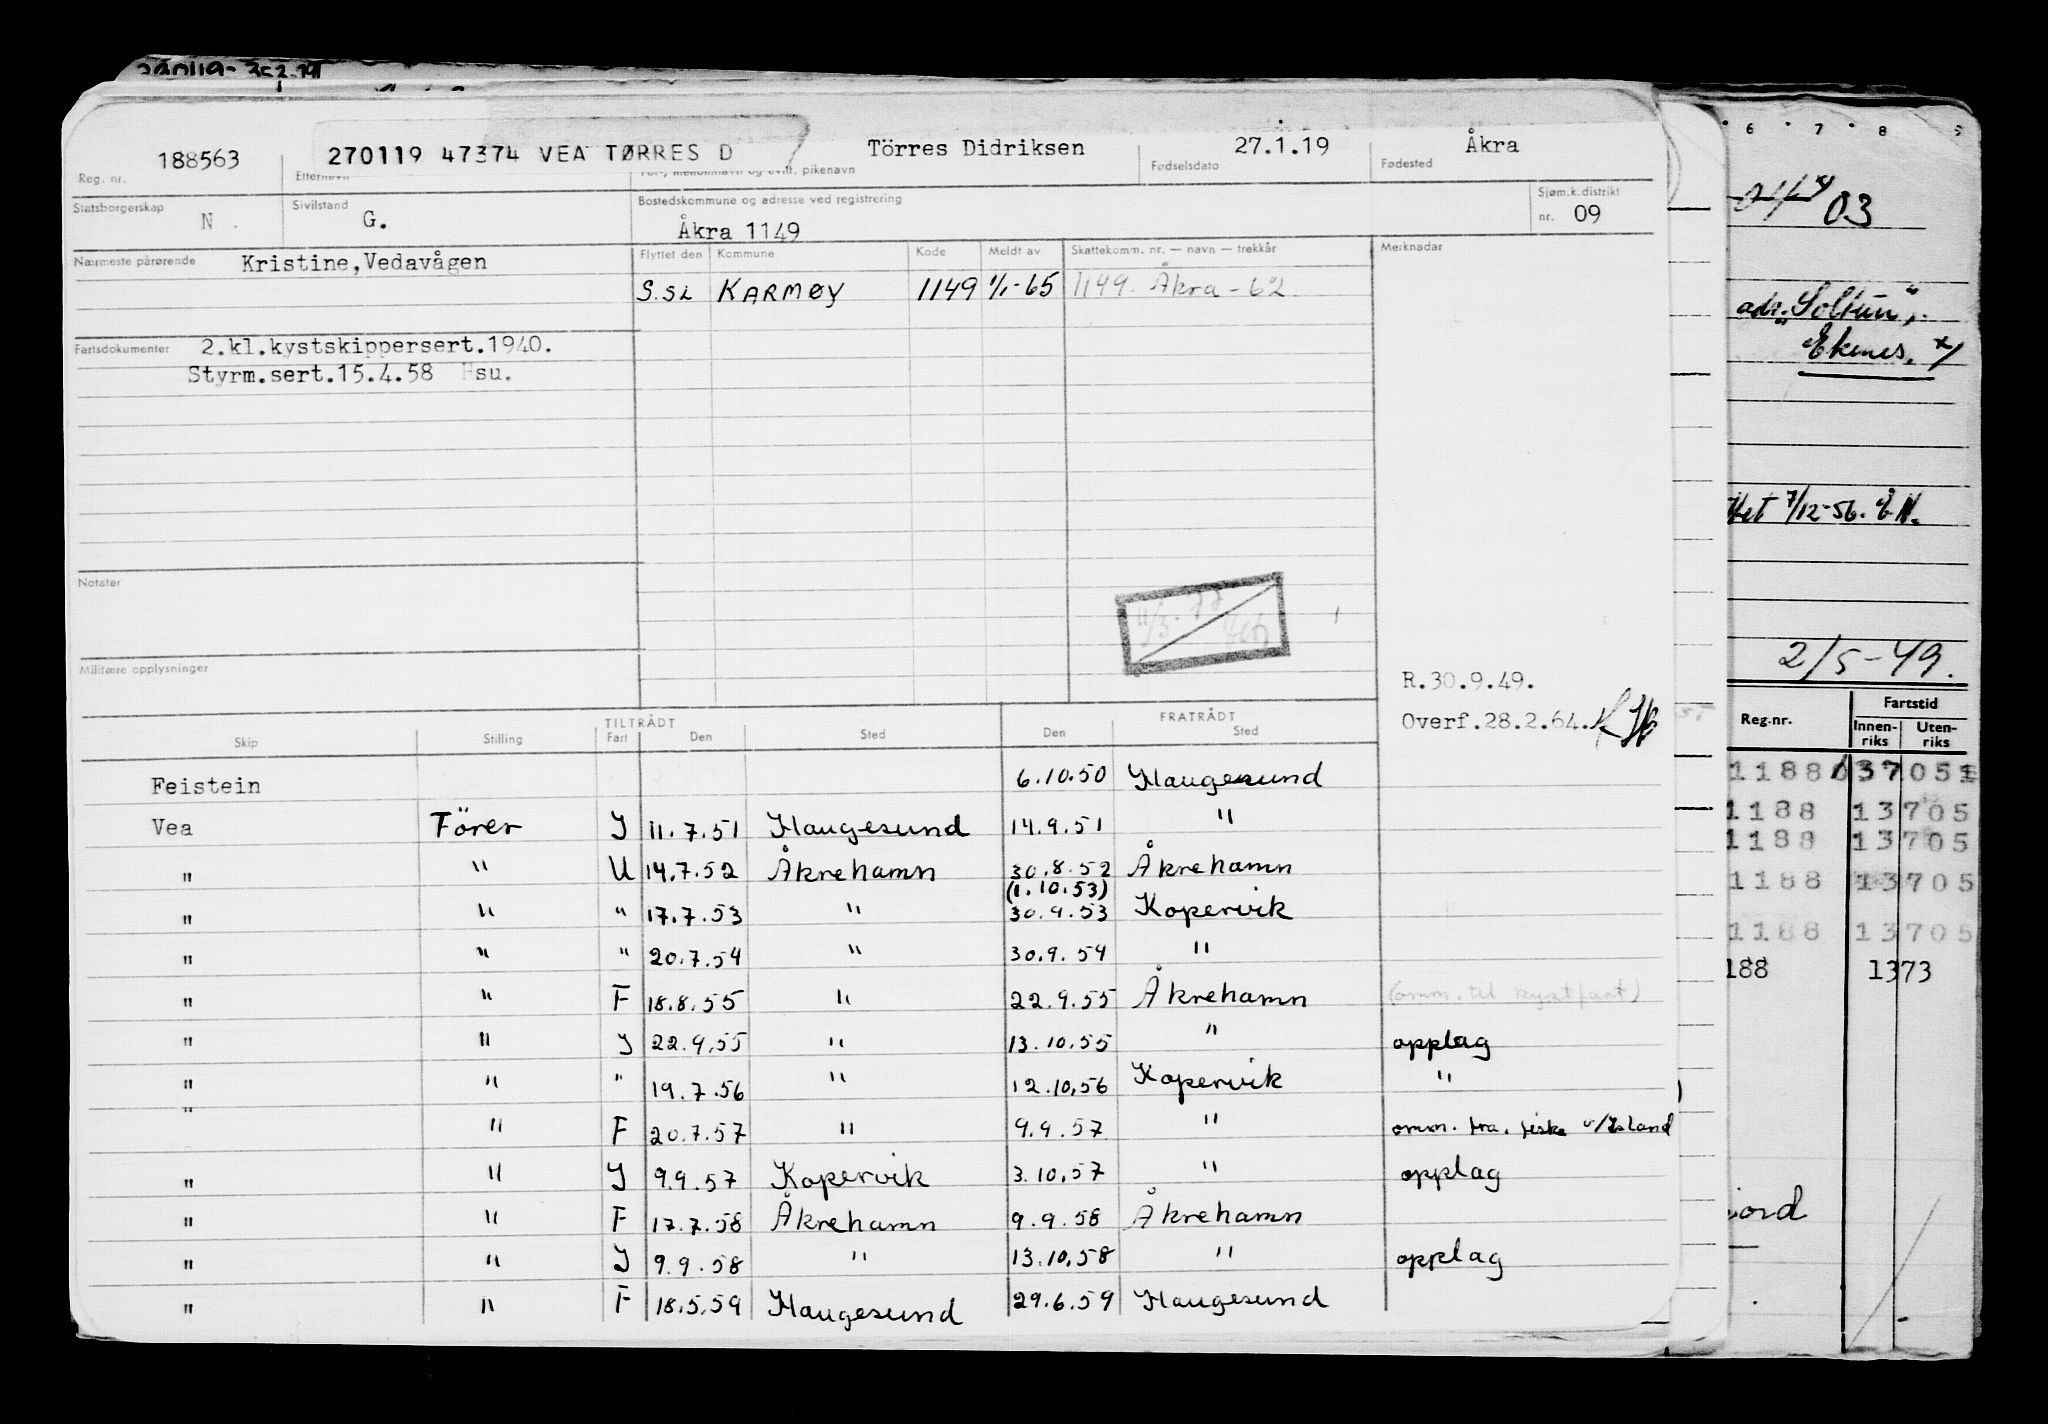 188563 270119 47374 VEA TØRRES D Törres Didriksen 27.1.19 Åkra
Reg. nr. Etternavn For-, mellomnavn og evnt. pikenavn Fødselsdato Fødested
Statsborgerskap N. Sivilstand G. Bostedskommune og adresse ved registrering Åkra 1149 Sjøm.k.distrikt nr. 09
Nærmeste pårørende Kristine, Vedavågen
Flyttet den Kommune Kode Meldt av Skattekomm. nr. — navn — trekkår Merknader
S.SL KARMØY 1149 1/1-65 1149. Åkra - 62
Fartsdokumenter 2.kl.kystskippersert.1940.
Styrm.sert.15.4.58 Hsu.
Notater
Militære opplysninger
R.30.9.49.
Overf.28.2.64.
TILTRÅDT FRATRÅDT
Skip Stilling Fart Den Sted Den Sted
Feistein 6.10.50 Haugesund
Vea Förer I 11.7.51 Haugesund 14.9.51 "
" " U 14.7.52 Åkrehamn 30.8.52 Åkrehamn
(1.10.53)
" " " 17.7.53 " 30.9.53 Kopervik
" " " 20.7.54 " 30.9.54 "
" " F 18.8.55 " 22.9.55 Åkrehamn (omm. til kystfart)
" " I 22.9.55 " 13.10.55 " opplag
" " " 19.7.56 " 12.10.56 Kopervik "
" " F 20.7.57 " 9.9.57 " omm. fra. fiske v/Island
" " I 9.9.57 Kopervik 3.10.57 " opplag
" " F 17.7.58 Åkrehamn 9.9.58 Åkrehamn
" " I 9.9.58 " 13.10.58 " opplag
" " F 18.5.59 Haugesund 29.6.59 Haugesund
6 7 8
03
adr. "Soltun",
Ekenes.
7/12-56. E.N.
2/5-49.
Reg.nr. Fartstid
Innen-riks Uten-riks
1188 13705
1188 13705
1188 13705
1188 13705
188 1373